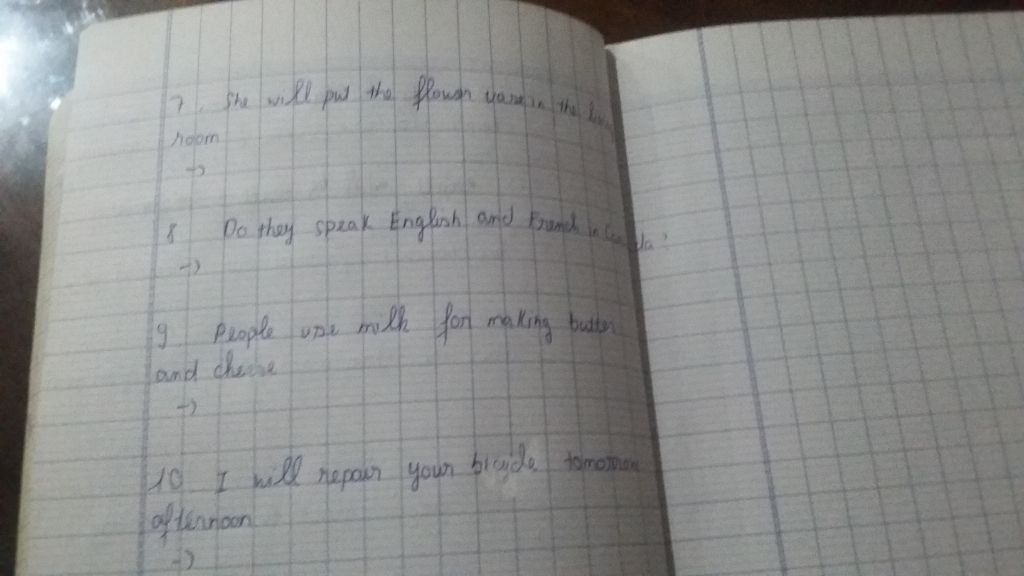 7. She will put the flower vase in the living
room
->
8 Do they speak English and French in Canada?
->
9 People use milk for making butter
and cheese
->
10 I will repair your bicycle tomorrow
afternoon
->